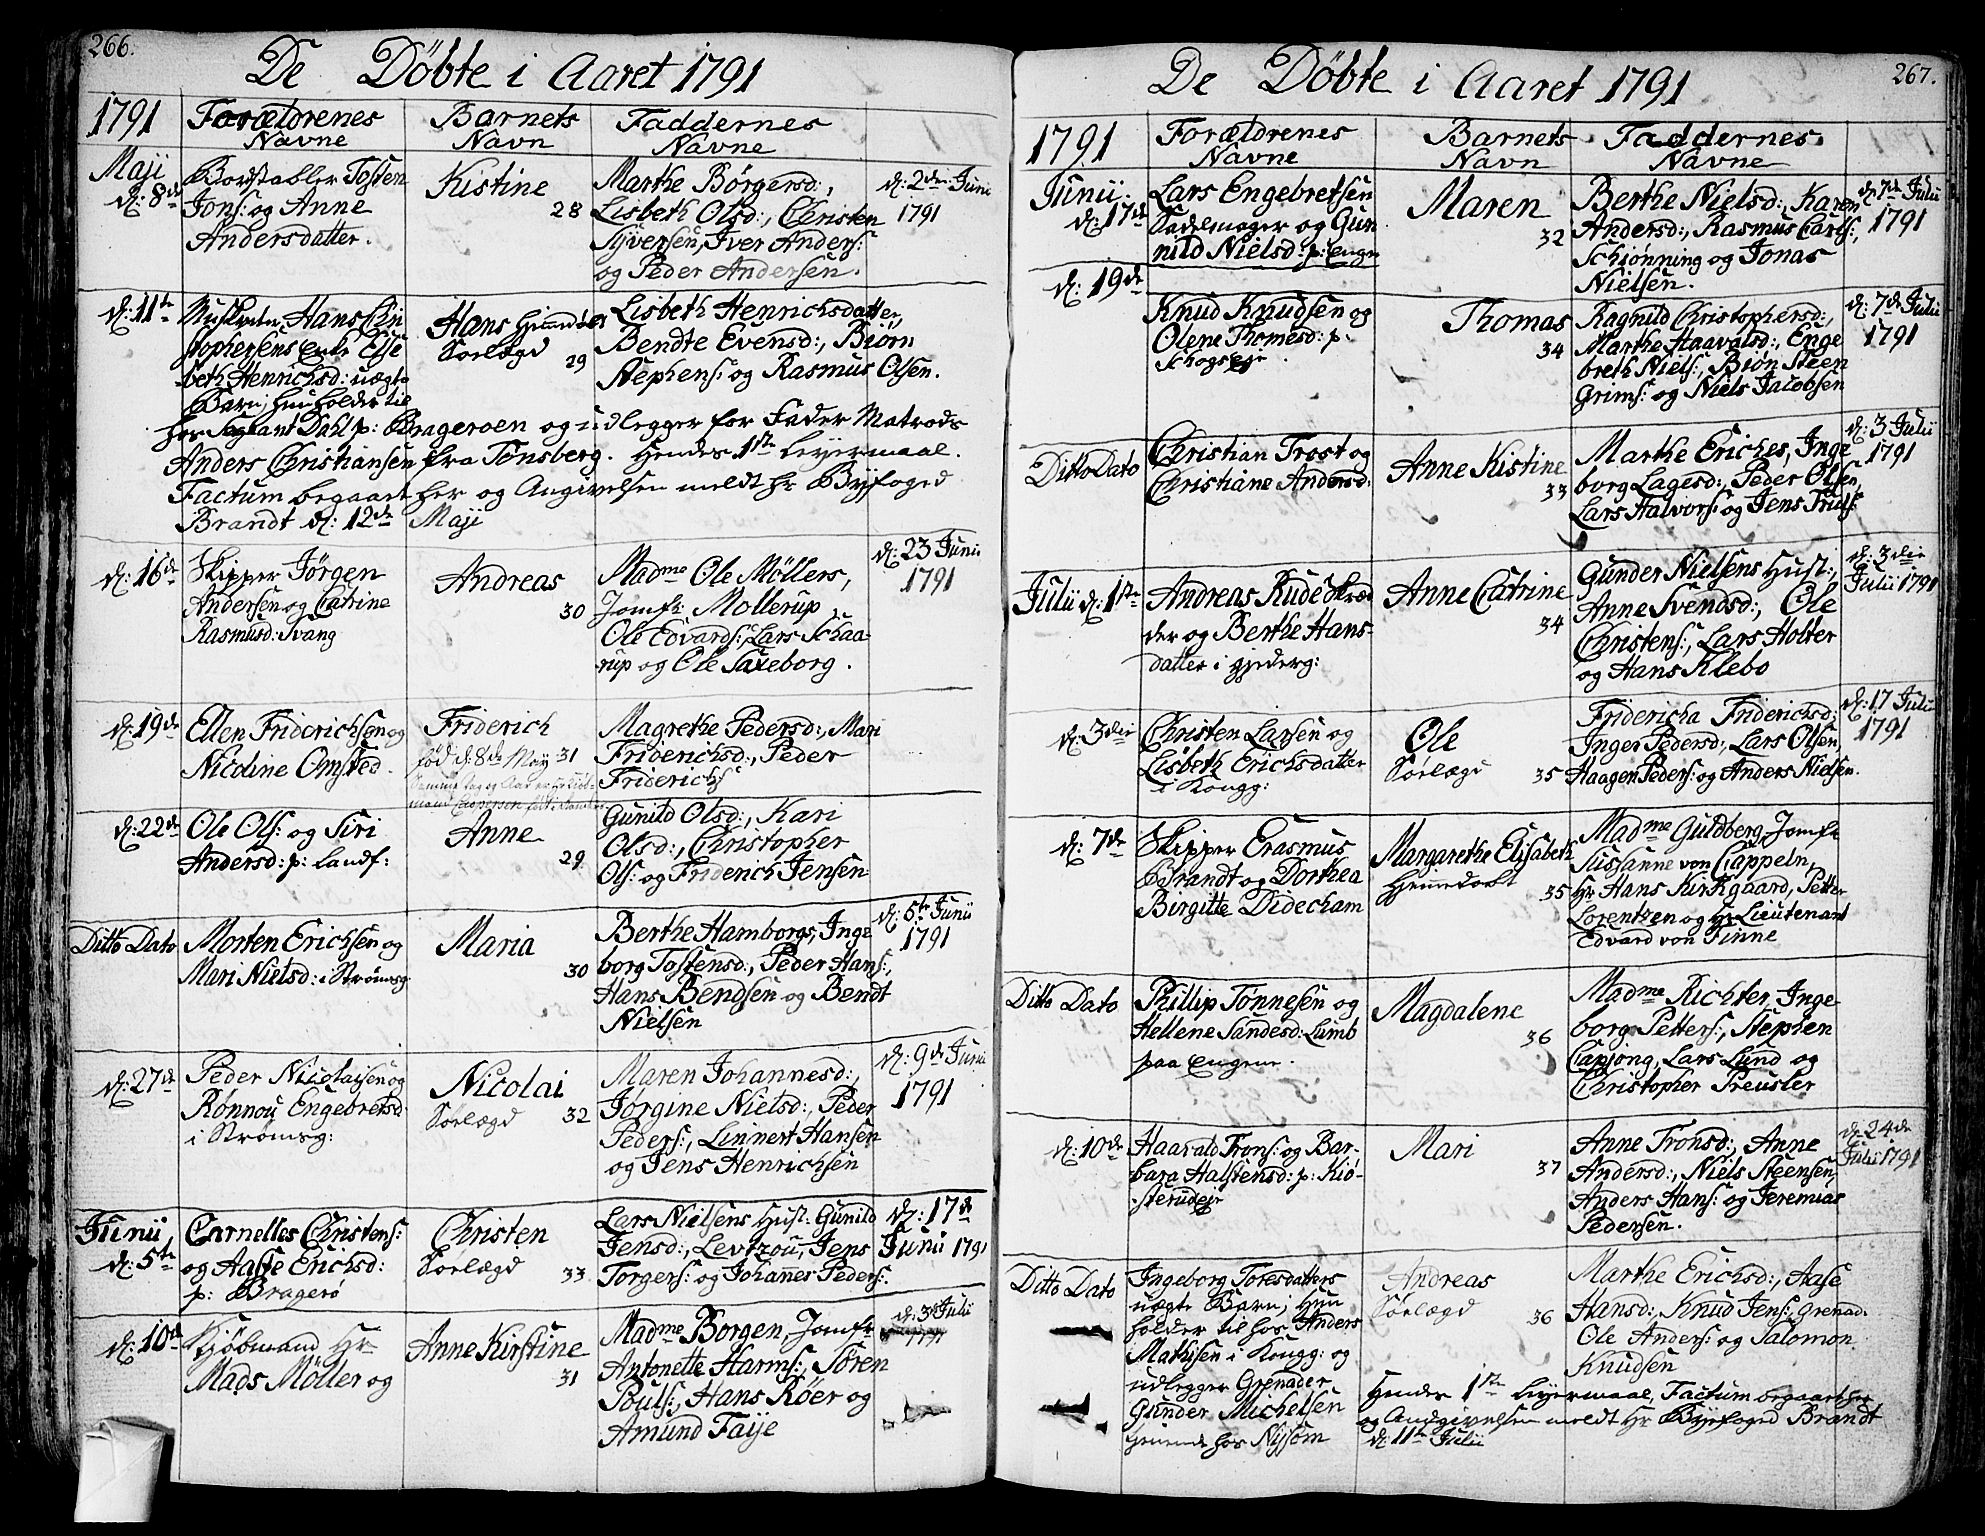 266.
De Döbte i Aaret 1791
1791 Forældrenes Navne Barnets Navn Faddernes Navne
Maji d: 8de
Bordstabler Tosten
Jons: og Anne
Andersdatter.
Kistine
28
Marthe Børgersd:,
Lisbeth Olsd:, Christen
Syversen, Iver Anders:
og Peder Andersen.
d: 2den Junii
1791
d: 11te
Hans Chri
stophersens Enke Else
beth Henrichsd: uægte
Barn; hun holder til
hos Dahl p: Brageroen og udlegger for Fader Matrods
Anders Christiansen fra Tønsberg. Hendes 1ste Leyermaal.
Factum begaaet her og Angivelsen meldt Hr Byfoged
Brandt d: 12de Maji
Hans
29
Lisbeth Henrichsdatter,
Bendte Evensd:, Biørn
Stephens: og Rasmus Olsen.
d: 16de
Skipper Jörgen
Andersen og Catrine
Rasmusd: Svang
Andreas
30
Madme Ole Møllers,
Jomfr: Mollerup
Ole Edvards:, Lars Schaa-
rup og Ole Saxeborg.
d: 23 Junii
1791
d: 19de
Ellen Friderichsen og
Nicoline Omsted.
Friderich
fød d: 8de May 31
Magrethe Pedersd:, Mari
Friderichsd:, Peder
Friderichs
d: 22de
Ole Ols: og Siri
Andersd: p: Landf:
Anne
29
Gunild Olsd:, Kari
Olsd:, Christopher
Ols: og Friderich Jensen
Ditto Dato
Morten Erichsen og
Mari Nielsd: i Strømsg
Maria
30
Berthe Hamborgs, Inge
borg Tostensd:, Peder Hans:,
Hans Bendsen og Bendt
Nielsen
d: 5te Junii
1791
d: 27de
Peder Nicolaisen og
Rønnou Engebretsd
i Strømsg:
Nicolai
32
Maren Johannesd:,
Jørgine Nielsd:, Peder
Peders:, Linnert Hansen
og Jens Henrichsen
d: 9de Junii
1791
Junii d: 5te
Cornelles Christens:
og Aasse Erichsd:
p: Bragerø
Christen
33
Lars Nielsens Hust: Gunild
Jensd:, Levtzou, Jens
Torgers: og Johannes Peders:
d: 17de
Junii 1791
d: 10de
Kjöbmand Hr
Mads Møller og
Anne Kirstine
31
Madme Borgen, Jomfr
Antonette Harms:, Søren
Pouls:, Hans Röer og
Amund Faije
d: 3die Julii
1791
267.
De Döbte i Aaret 1791
1791 Forældrenes Navne Barnets Navn Faddernes Navne
Junii d: 17de
Lars Engebretsen
Sadelmager og Gun
nild Nielsd: p: Engn
Maren
32
Berthe Nielsd:, Karen
Andersd:, Rasmus Carls:,
Schiønning og Jonas
Nielsen.
d: 7de Julii
1791
d: 19de
Knud Knudsen og
Olene Thomesd: p:
Thomas
34
Ragnild Christophersd:,
Marthe Haavalsd:, Enge
breth Niels:, Biøn Steen
Grims: og Niels Jacobsen
d: 7de Julii
1791
Ditto Dato
Christian Trost og
Christiane Andersd:
Anne Kistine
33
Marthe Eriches, Inge
borg Lagesd:, Peder Olsen,
Lars Halvors: og Jens Truls:
d: 3 Julii
1791
Julii d: 1ste
Andreas Rude Skræd
der og Berthe Hans-
datter i
Anne Catrine
34
Gunder Nielsens Hust:,
Anne Svendsd:, Ole
Christens:, Lars Holter
og Hans Klebo
d: 3die
Julii 1791
d: 3die
Christen Larsen og
Lisbeth Erichsdatter
i Kongg:
Ole
35
Fridericha Friderichsd:,
Inger Pedersd:, Lars Olsen,
Haagen Peders: og Anders Nielsen.
d: 17 Julii
1791
d: 7de
Skipper Erasmus
Brandt og Dorthea
Birgitte Didecham
Margarethe Elisabeth
Hjemedøbt
35
Madme Guldberg, Jomfr
Susanne von Cappeln,
Hr Hans Kirkgaard, Petter
Lorentzen og Hr Lieutenant
Edvard von Finne
Ditto Dato
Phillip Tønnesen og
Hellene Sandesd: Lumb
paa Engene.
Magdalene
36
Madme Richter, Inge-
borg Petters:, Stephen
Capjong, Lars Lund og
Christopher Preusler
d: 10de
Haavald Trons: og Bar-
bara Halstensd: p: Kiø-
sterudejr
Mari
37
Anne Tronsd:, Anne
Andersd:, Niels Steensen,
Anders Hans: og Jeremias
Pedersen.
d: 24de
Julii 1791
Ditto Dato
Ingeborg Toresdatters
uægte Barn; Hun
holder til hos Anders
Mathisen i Kongg: og
udlegger Grenader
Gunder Michelsen
hos Nyssom
Andreas
36
Marthe Erichsd:, Aase
Hansd:, Knud Jens: Grenad:
Ole Anders: og Salomon
Knudsen
Hendes 1ste Leyermaal, Factum begaaet her
og Andgivelsen meldt Hr Byefoged Brandt
d: 11te Julii